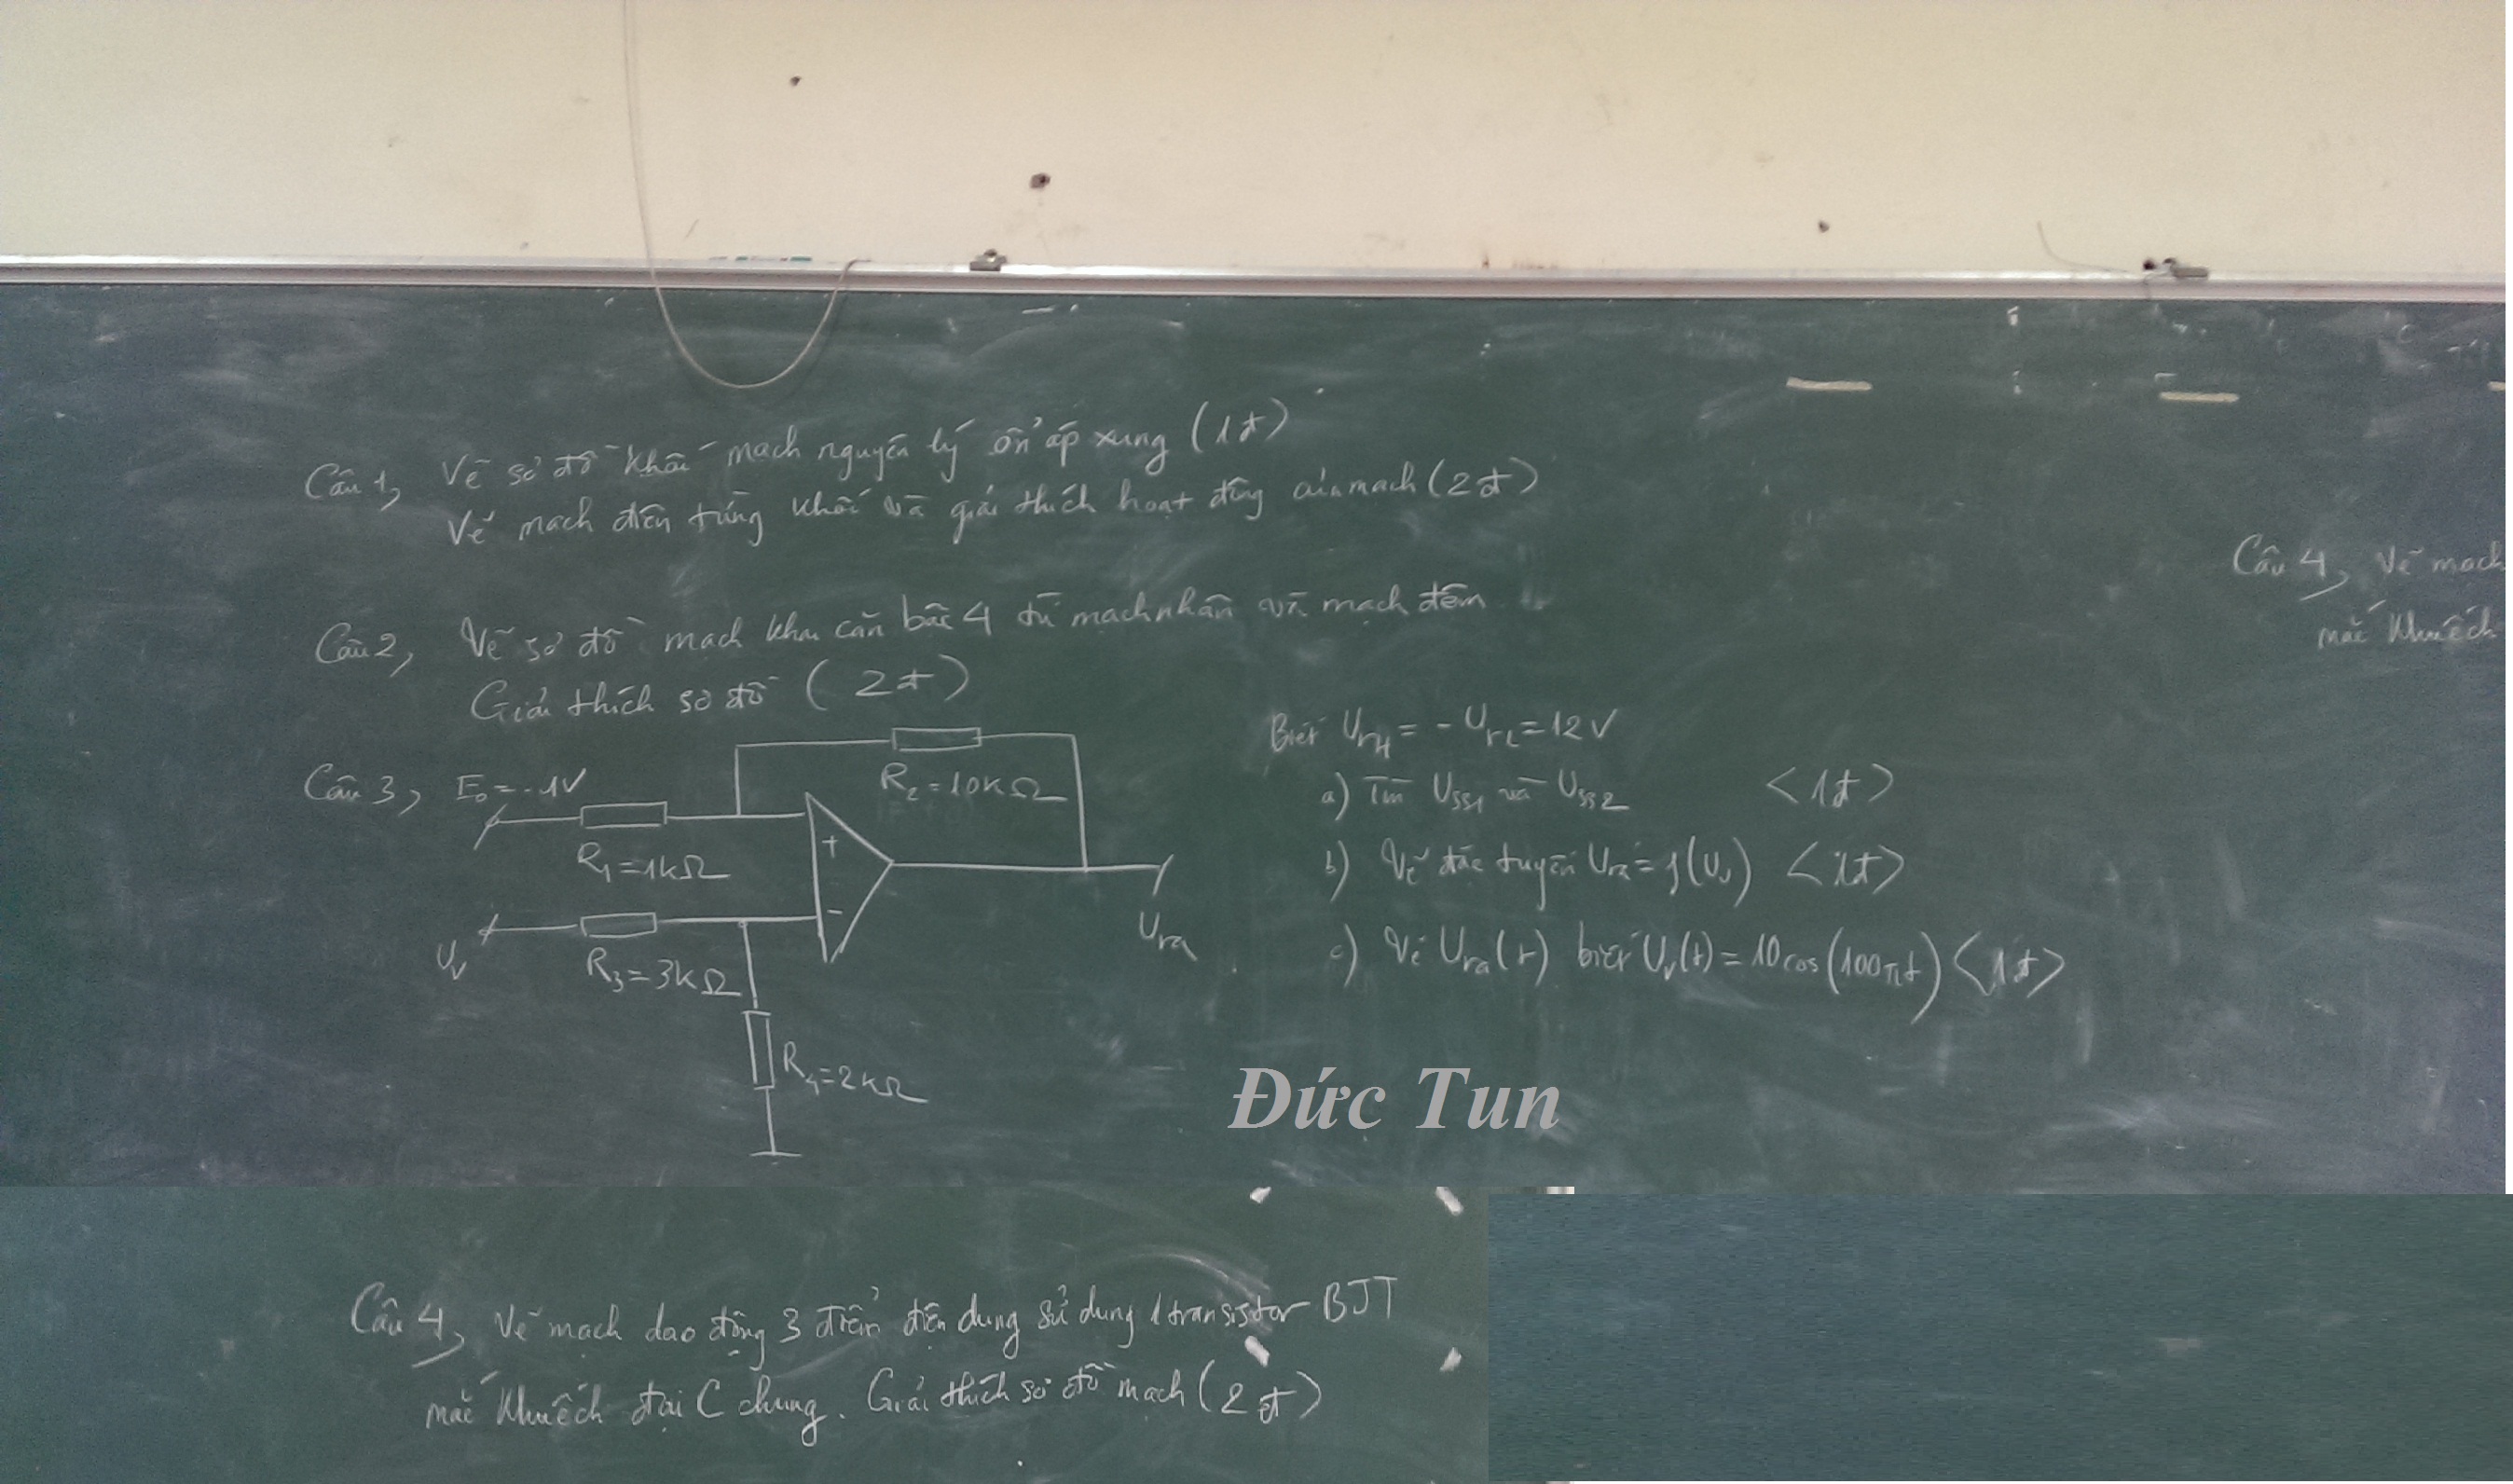 Câu 1, Vẽ sơ đồ khối mạch nguyên lý ổn áp xung (1đ)
Vẽ mạch điện từng khối và giải thích hoạt động của mạch (2đ)
Câu 4, Vẽ mạch
mắc khuếch
Câu 2, Vẽ sơ đồ mạch khai căn bậc 4 từ mạch nhân và mạch đếm
Giải thích sơ đồ (2đ)
Câu 3, E₀ = -1V
R₂ = 10KΩ
R₁ = 1KΩ
+
-
Uᵥ
R₃ = 3KΩ
R₄ = 2KΩ
Ura
Biết UrH = -UrL = 12V
a) Tìm Uss1 và Uss2 <1đ>
b) Vẽ đặc tuyến Ura = f(Uv) <1đ>
c) Vẽ Ura(t) biết Uv(t) = 10cos(100πt) <1đ>
Đức Tun
Câu 4, Vẽ mạch dao động 3 điểm điện dung sử dụng 1 transistor BJT
mắc khuếch đại C chung. Giải thích sơ đồ mạch (2đ)